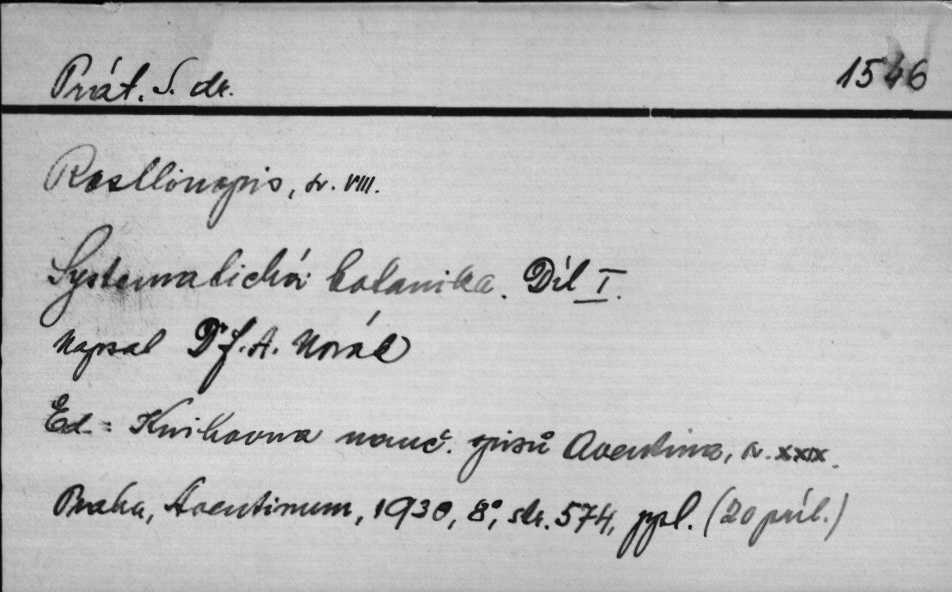 Prát. S. dr. 1546
Rostlinopis, sv. VIII.
Systematická botanika. Díl I.
Napsal Dr F. A. Novák
Ed. = Knihovna nauč. spisů Aventina, sv. XXIX.
Praha, Aventinum, 1930, 8°, str. 574, ppl. (20 příl.)